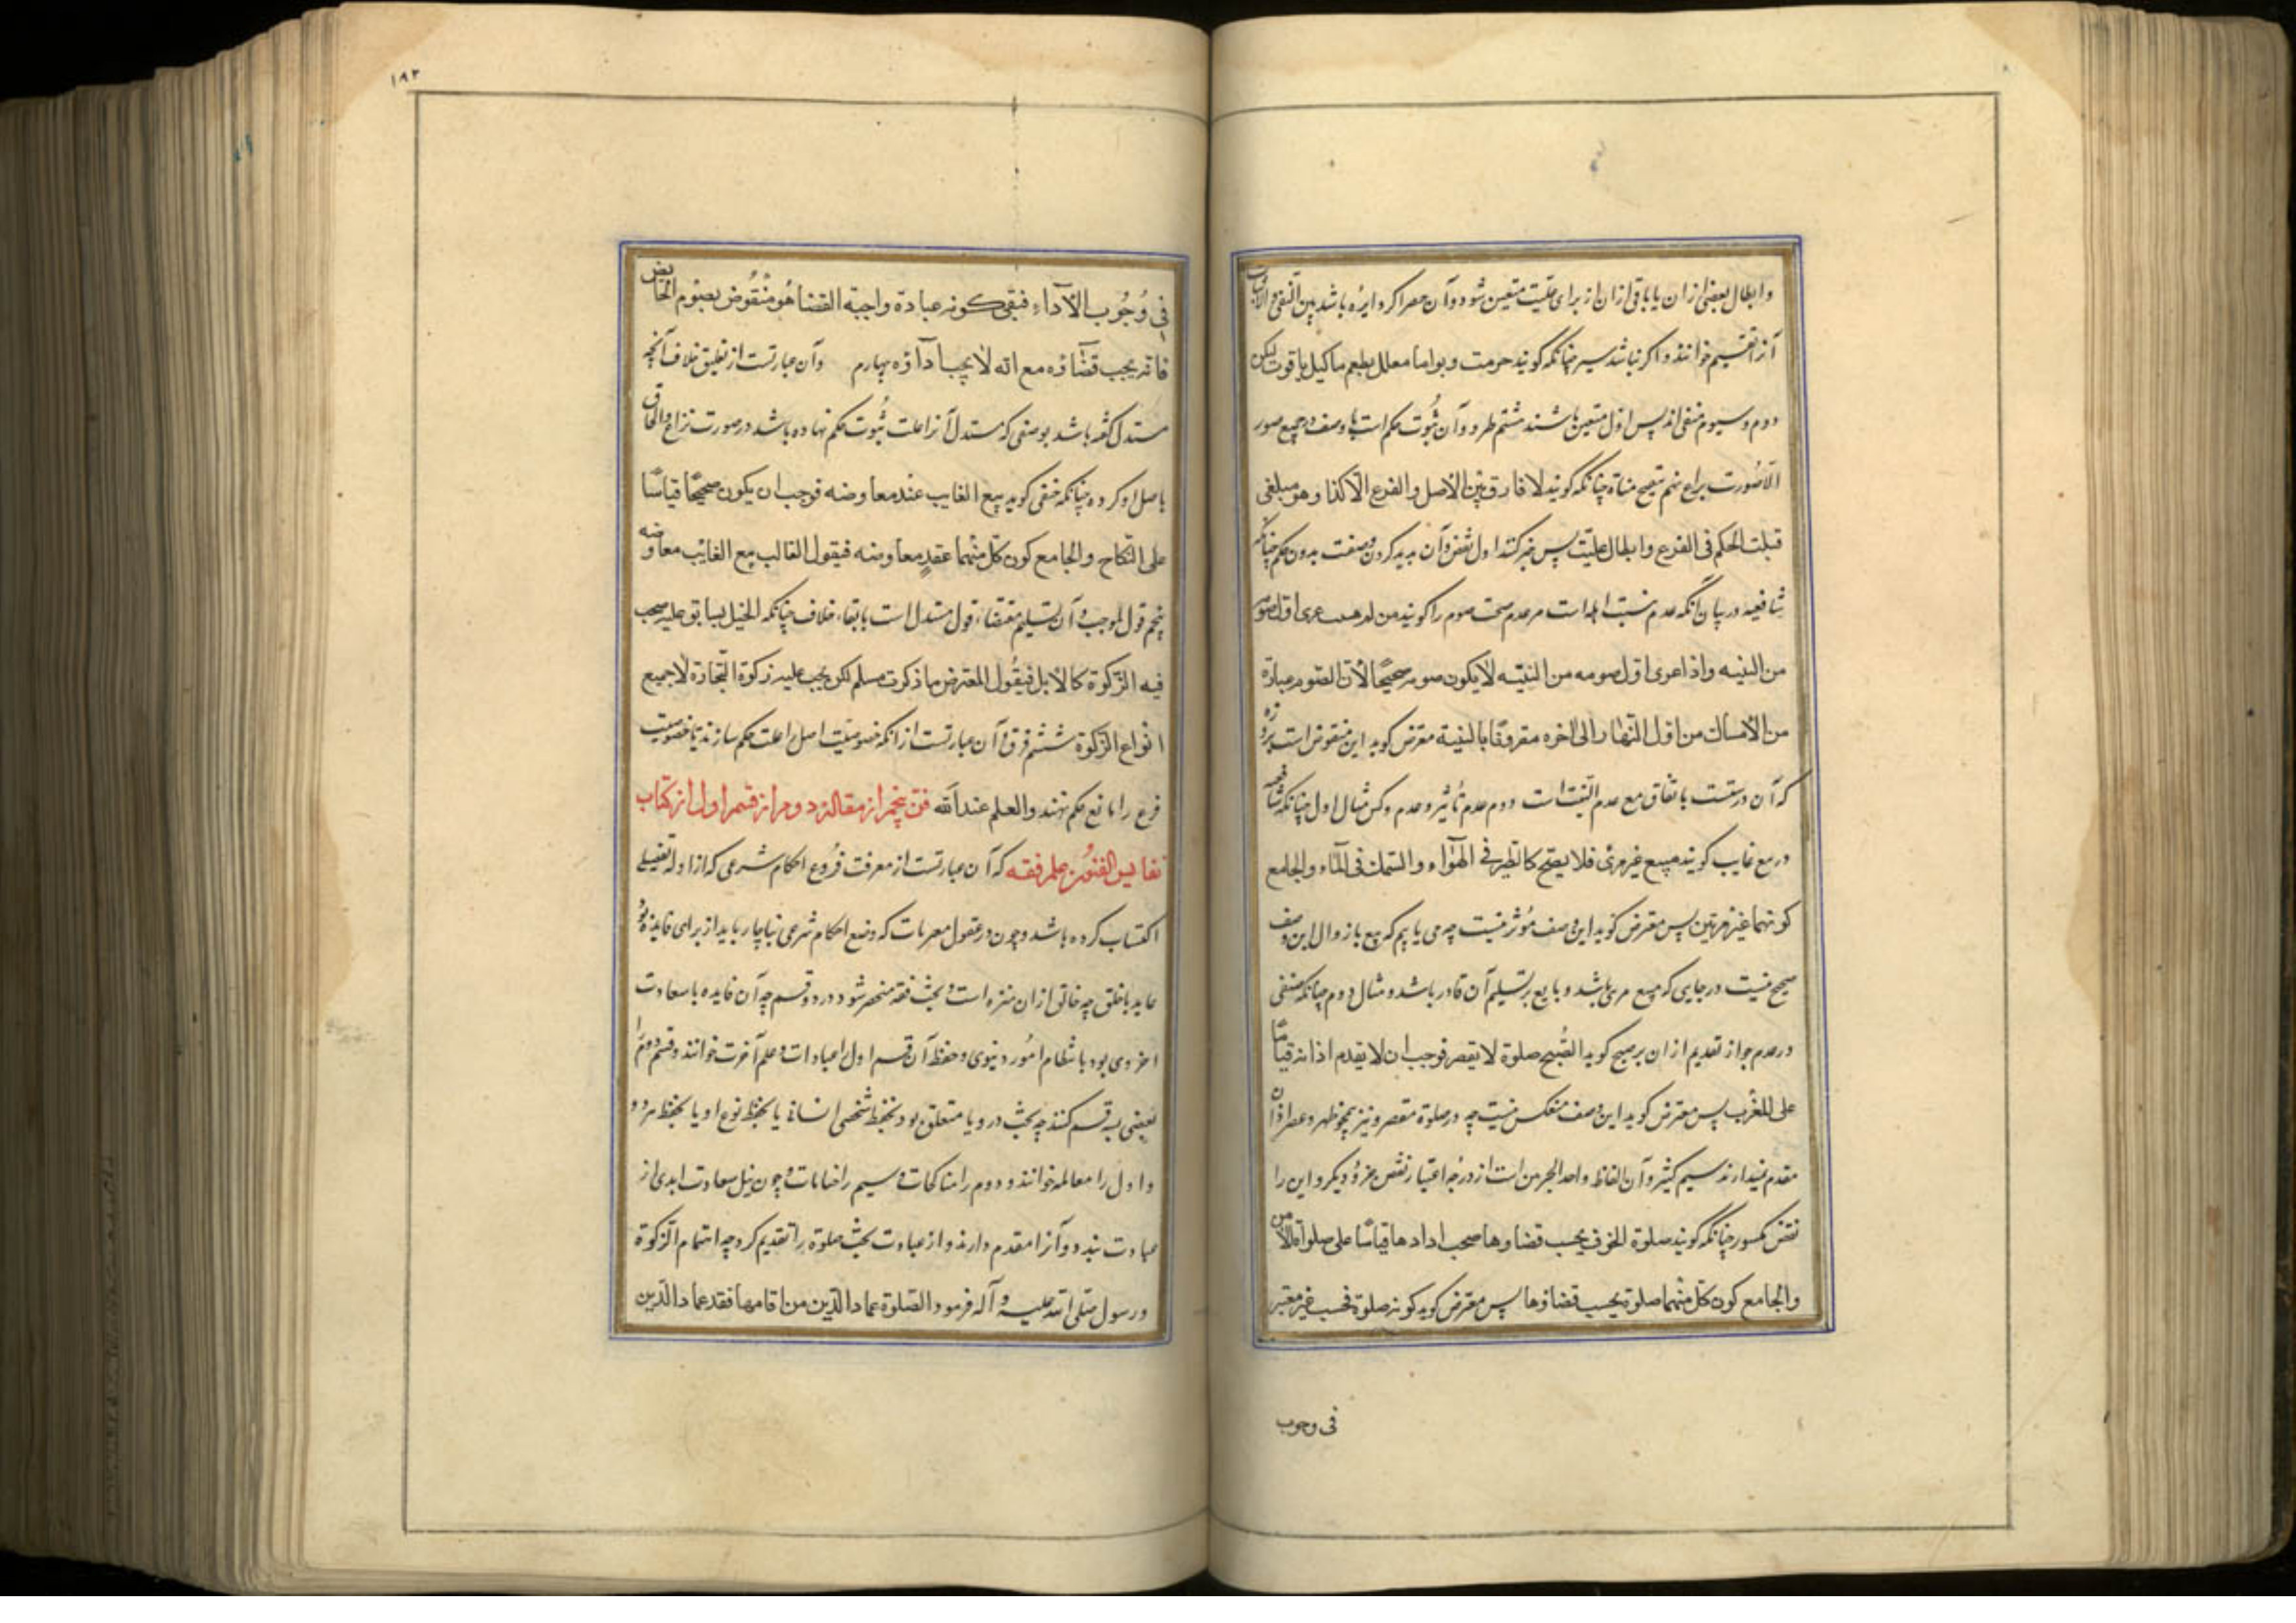 وابطال بعضی ازان یا باقی ازان از برای علیت متعین شود و آن حصر اگر دایره باشد بین النفی والاثبات
آنرا تقسیم خوانند و اگر نباشد سیر چنانکه گویند حرمت ربوا اما معلل بطعم ما کیل یا قوت لیکن
دوم و سیوم منفی اند پس اول متعین باشند ششم طرد و آن ثبوت حکم است با وصف در جمیع صور
الا صورت نزاع تنقیح مناة چنانکه گویند لا فارق بین الاصل والفرع الا کذا وهو مبلغی
قبلت الحکم فی الفرع وابطال علیت پس خبر کنند اول نقض و آن پدید کردن وصفت بدون حکم چنانکه
شافعیه در بیان آنکه عدم نیت مر عدم صحت صوم را گویند من اول صومه
من النیه واذا عری اول صومه من النیته لا یکون صومه صحیحًا لان الصوم عبارة
من الامساک من اول النهار الی اخره مقروقًا بالنیة معترض گوید این منقوض است بروزه
که آن درستست باتفاق مع عدم التیت است دوم عدم تأثیر و عدم وکس مثال اول چنانکه شافعیه
در بیع غایب گویند مبیع غیر مرئی فلا یصح کالطیر فی الهواء والسمک فی الماء والجامع
کونهما غیر مرئین پس معترض گوید این وصف مؤثر نیست چه می یابیم که بیع با زوال این وصف
صحیح نیست در جایی که مبیع مرئی باشد و بایع بر تسلیم آن قادر باشد و مثال دوم چنانکه حنفی
در عدم جواز تقدیم اذان بر صبح گوید الصبح صلوة لا یقصر فوجب ان لا یقدم اذانه قیاسًا
علی المغرب پس معترض گوید این وصف منعکس نیست چه در صلوة مقصر و نیز همچو ظهر و عصر اذان
مقدم نمیدارند سیم کثیر و آن الفاظ واحد من است از درجه اعتبار نقض جزؤ دیگر و این را
نقض مکسور چنانکه گویند صلوة الخوف یجب قضاوها صحب اداها قیاسًا علی صلواة الامن
والجامع کون کل منهما صلوة یجب قضاؤها پس معترض گوید کونه صلوة فحسب غیر معتبر
فی وجوب
۱۸۲
فی وجوب الآداء فبقی کونه عبادة واجبة القضا هو منقوض بصوم الحایض
فانه یجب قضاؤه مع انه لا یجب اداؤه چهارم وآن عبارتست از تعلیق خلاف آنچه
مستدل گفته باشد بوصفی که مستدل آنرا علت ثبوت حکم نهاده باشد در صورت نزاع والحاق
باصل او کرده چنانکه حنفی گوید بیع الغایب عند معاوضه فوجب ان یکون صحیحًا قیاسًا
علی النکاح والجامع کون کل منهما عقد معاوضه فیقول القالب بیع الغایب معاوضه
پنجم قول بموجب و آن تسلیم مقتضاء قول مستدل است بابقاء خلاف چنانکه الخیل یسابق علیه فیجب
فیه الزکوة کالابل فیقول المعترض ما ذکرت مسلم لکن یجب علیه زکوة التجارة لا جمیع
انواع الزکوة ششم فرق و آن عبارتست از آنکه خصوصیت اصل را علت حکم سازند یا خصوصیت
فرع را مانع حکم نهند والعلم عند الله فن پنجم از مقاله دوم از قسم اول از کتاب
نفایس الفنون علم فقه که آن عبارتست از معرفت فروع احکام شرعی که از ادله تفصیلی
اکتساب کرده باشد و چون در عقول معریات که وضع احکام شرعی بناچار باید از برای فایدۀ بود
عاید باخلق چه خالق ازان منزه است و بحث فقه منحصر شود در دو قسم چه آن فایده یا سعادت
اخروی بود یا انتظام امور دنیوی و حفظ آن قسم اول را عبادات و علم آخرت خوانند و قسم دوم را
بعضی بسه قسم کنند چه بحث درو یا متعلق بود بحفظ شخص انسانی یا بحفظ نوع او یا بحفظ هر دو
و اول را معامله خوانند و دوم را مناکحات و سیم را جنایات و چون نیل سعادت ابدی از
عبادت بیند و آنرا مقدم دارند و از عبادت بحث صلوة را تقدیم کرد چه اهتمام الزکوة
و رسول صلی الله علیه و آله فرمود الصلوة عماد الدین من اقامها فقد عماد الدین